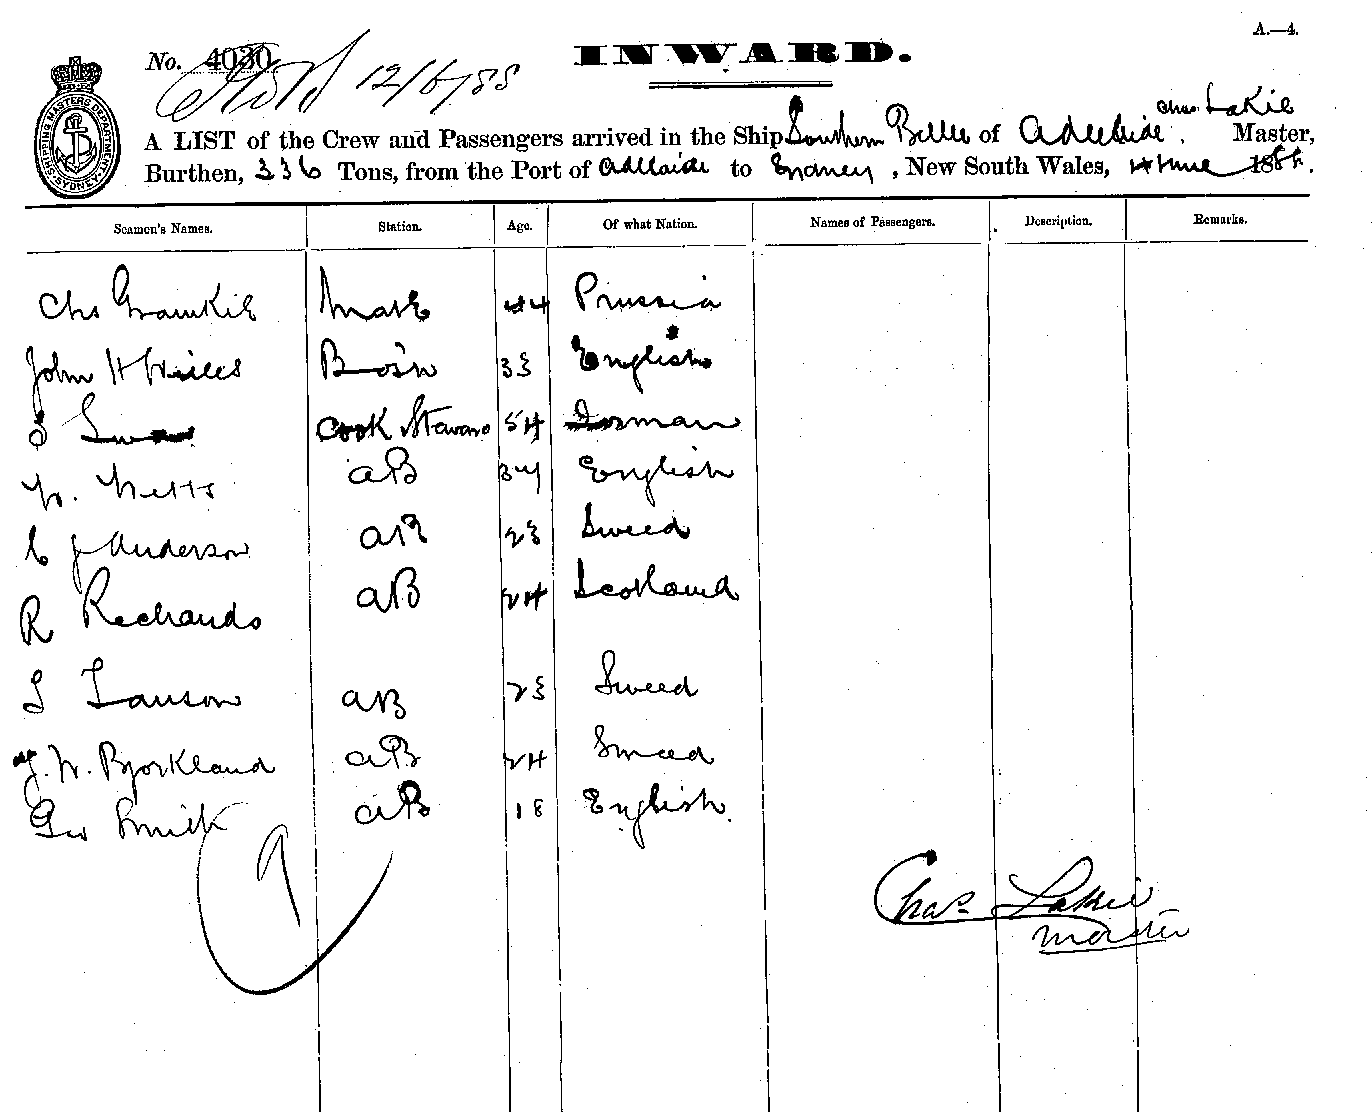 A.—4.
No. 4030
INWARD.
12/6/88
Chas Lakie
A LIST of the Crew and Passengers arrived in the Ship Southern Belle of Adelaide, Master,
Burthen, 336 Tons, from the Port of Adelaide to Sydney, New South Wales, June 1888.
SHIPPING MASTERS DEPARTMENT SYDNEY
Seamen's Names. Station. Age. Of what Nation. Names of Passengers. Description. Remarks.
Chs Mate 44 Prussia
John H Bos'n 33 English
Cook Steward 54
W. AB English
C J Anderson AB 23 Sweed
R Richards AB 24 Scotland
AB 23 Sweed
J. W. Bjorkland AB 24 Sweed
Geo Smith AB 18 English
9
Chas Lakie
Master